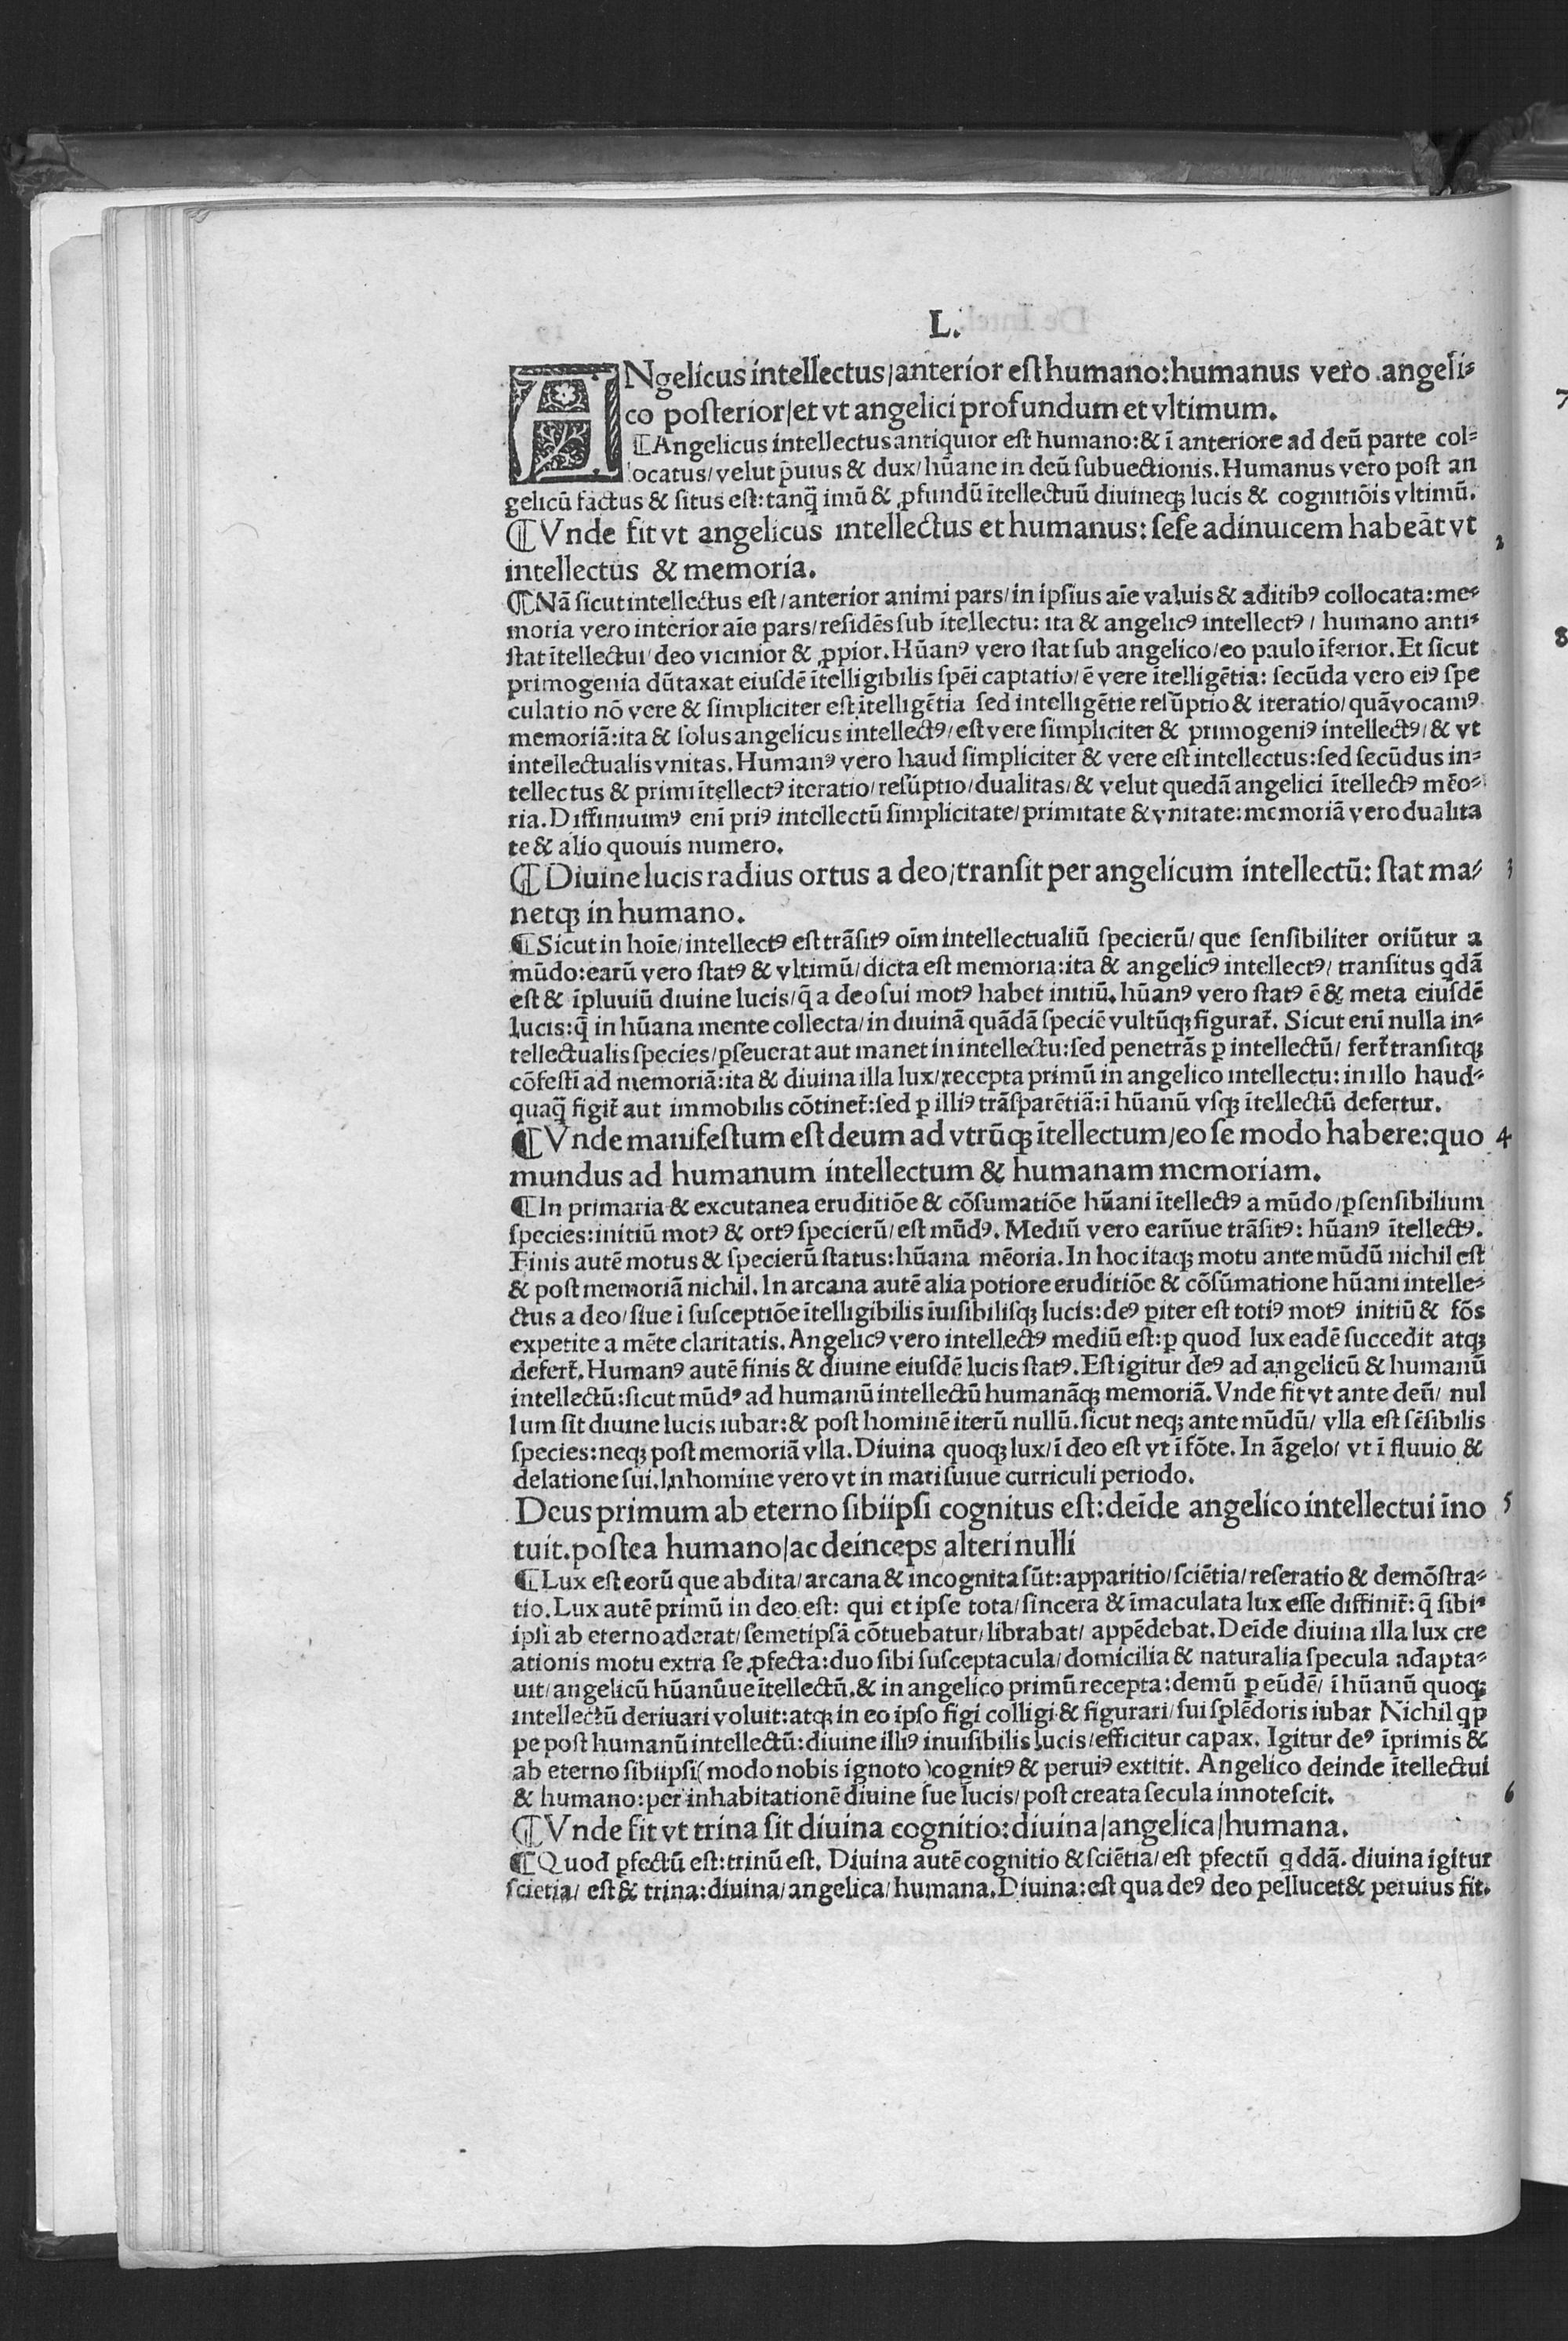 L.
ANgelicus intellectus/anterior est humano:humanus vero angeli⸗
co posterior/et vt angelici profundum et vltimum.
¶Angelicus intellectus antiquior est humano:& ī anteriore ad deū parte col⸗
locatus/velut p̄uius & dux/hūane in deū subuectionis.Humanus vero post an
gelicū factus & situs est:tanq̄ imū & ꝓfundū ītellectuū diuineqꝫ lucis & cognitiōis vltimū.
¶Vnde fit vt angelicus intellectus et humanus:sese adinuicem habeāt vt 2
intellectus & memoria.
¶Nā sicut intellectus est/anterior animi pars/in ipsius aīe valuis & aditibꝰ collocata:me⸗
moria vero interior aīe pars/residēs sub ītellectu: ita & angelicꝰ intellectꝰ/ humano anti⸗
stat ītellectui/deo vicinior & ꝓpior.Hūanꝰ vero stat sub angelico/eo paulo īferior.Et sicut
primogenia dūtaxat eiusdē ītelligibilis spēi captatio/ē vere ītelligētia: secūda vero eiꝰ spe
culatio nō vere & simpliciter est ītelligētia sed intelligētie resūptio & iteratio/quā vocamꝰ
memoriā:ita & solus angelicus intellectꝰ/est vere simpliciter & primogeniꝰ intellectꝰ/& vt
intellectualis vnitas.Humanꝰ vero haud simpliciter & vere est intellectus:sed secūdus in⸗
tellectus & primi ītellectꝰ iteratio/resūptio/dualitas/& velut quedā angelici ītellectꝰ mēo⸗
ria.Diffiniuimꝰ enī priꝰ intellectū simplicitate/primitate & vnitate:memoriā vero dualita
te & alio quouis numero.
¶Diuine lucis radius ortus a deo/transit per angelicum intellectū: stat ma⸗ 3
netqꝫ in humano.
¶Sicut in hoīe/intellectꝰ est trāsitꝰ oīm intellectualiū specierū/ que sensibiliter oriūtur a
mūdo:earū vero statꝰ & vltimū/dicta est memoria:ita & angelicꝰ intellectꝰ/ transitus qdā
est & īpluuiū diuine lucis/q̄ a deo sui motꝰ habet initiū.hūanꝰ vero statꝰ ē & meta eiusdē
lucis:q̄ in hūana mente collecta/in diuinā quādā speciē vultūqꝫ figurat̄. Sicut enī nulla in⸗
tellectualis species/ꝑseuerat aut manet in intellectu:sed penetrās ꝑ intellectū/ fert̄ transitqꝫ
cōfestī ad memoriā:ita & diuina illa lux/recepta primū in angelico intellectu: in illo haud⸗
quaq̄ figit̄ aut immobilis cōtinet̄:sed ꝑ illiꝰ trāsparētiā:ī hūanū vsqꝫ ītellectū defertur.
¶Vnde manifestum est deum ad vtrūqꝫ ītellectum/eo se modo habere:quo 4
mundus ad humanum intellectum & humanam memoriam.
¶In primaria & excutanea eruditiōe & cōsumatiōe hūani ītellectꝰ a mūdo/ꝑ sensibilium
species:initiū motꝰ & ortꝰ specierū/est mūdꝰ. Mediū vero earūue trāsitꝰ: hūanꝰ ītellectꝰ.
Finis autē motus & specierū status:hūana mēoria.In hoc itaqꝫ motu ante mūdū nichil est
& post memoriā nichil.In arcana autē alia potiore eruditiōe & cōsūmatione hūani intelle⸗
ctus a deo/siue ī susceptiōe ītelligibilis īuisibilisqꝫ lucis:deꝰ ꝑiter est totiꝰ motꝰ initiū & fōs
expetite a mēte claritatis.Angelicꝰ vero intellectꝰ mediū est:ꝑ quod lux eadē succedit atqꝫ
defert̄.Humanꝰ autē finis & diuine eiusdē lucis statꝰ.Est igitur deꝰ ad angelicū & humanū
intellectū:sicut mūdꝰ ad humanū intellectū humanāqꝫ memoriā.Vnde fit vt ante deū/ nul
lum sit diuine lucis iubar:& post hominē iterū nullū.sicut neqꝫ ante mūdū/ vlla est sēsibilis
species:neqꝫ post memoriā vlla.Diuina quoqꝫ lux/ī deo est vt ī fōte. In āgelo/ vt ī fluuio &
delatione sui.In homine vero vt in mari suiue curriculi periodo.
Deus primum ab eterno sibiipsi cognitus est:deīde angelico intellectui īno 5
tuit.postea humano/ac deinceps alteri nulli
¶Lux est eorū que abdita/arcana & incognita sūt:apparitio/sciētia/reseratio & demōstra⸗
tio.Lux autē primū in deo est: qui et ipse tota/sincera & īmaculata lux esse diffinit̄:q̄ sibi⸗
ipsi ab eterno aderat/semetipsā cōtuebatur/librabat/ appēdebat.Deīde diuina illa lux cre
ationis motu extra se ꝓfecta:duo sibi susceptacula/domicilia & naturalia specula adapta⸗
uit/angelicū hūanūue ītellectū.& in angelico primū recepta:demū ꝑ eūdē/ ī hūanū quoqꝫ
intellectū deriuari voluit:atqꝫ in eo ipso figi colligi & figurari/sui splēdoris iubar Nichil qp
pe post humanū intellectū:diuine illiꝰ inuisibilis lucis/efficitur capax. Igitur deꝰ īprimis &
ab eterno sibiipsi(modo nobis ignoto)cognitꝰ & peruiꝰ extitit. Angelico deinde ītellectui
& humano:per inhabitationē diuine sue lucis/post creata secula innotescit. 6
¶Vnde fit vt trina sit diuina cognitio:diuina/angelica/humana.
¶Quod ꝑfectū est:trinū est. Diuina autē cognitio & sciētia/est ꝑfectū qddā. diuina igitur
scietia/ est & trina:diuina/angelica/humana.Diuina:est qua deꝰ deo pellucet & peruius fit.
7
8